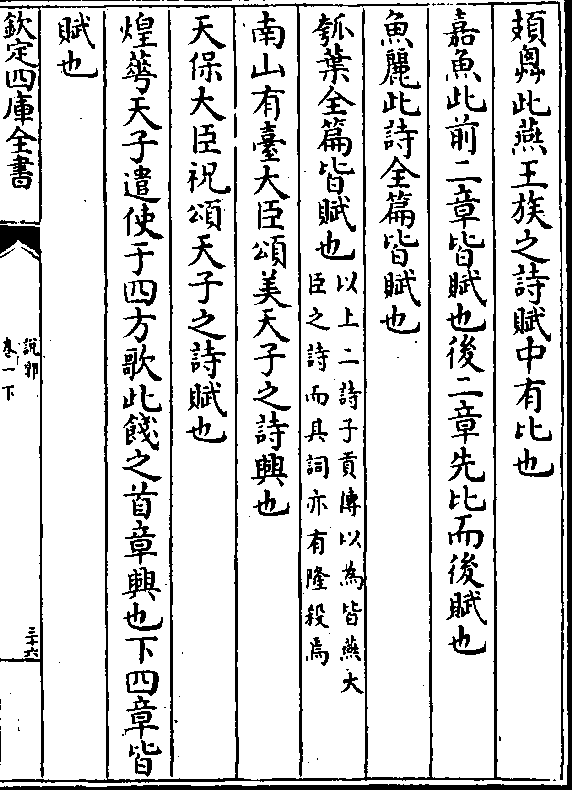 頍弁此燕王族之詩賦中有比也
嘉魚此前二章皆賦也後二章先比而後賦也
魚麗此詩全篇皆賦也
瓠葉全篇皆賦也以上二詩子貢傳以為皆燕大
臣之詩而其詞亦有隆殺焉
南山有臺大臣頌美天子之詩興也
天保大臣祝頌天子之詩賦也
煌華天子遣使于四方歌此餞之首章興也下四章皆
賦也
欽定四庫全書
說郛
卷一下
三十六